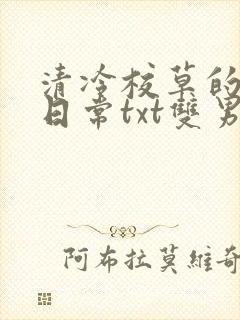 清冷校草的
日常txt雙男
阿布拉莫維奇